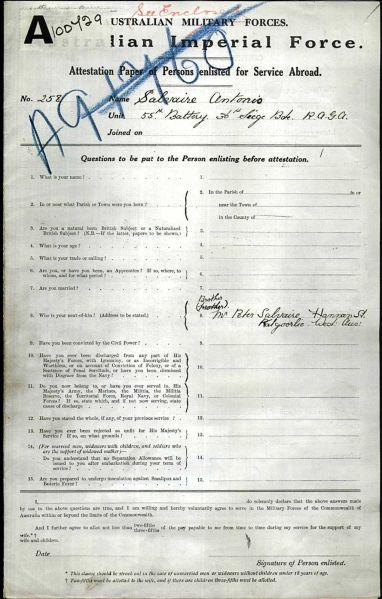 See Enclosed
A 100429
AUSTRALIAN MILITARY FORCES.
Australian Imperial Force.
Attestation Paper of Persons enlisted for Service Abroad.
No. 258 Name Salvaire Antonio
Unit 55th Battery 36th Siege Bde. R.A.G.A.
Joined on
Questions to be put to the Person enlisting before attestation.
1. What is your name?
2. In or near what Parish or Town were you born?
2. In the Parish of in or
near the Town of
in the County of
3. Are you a natural born British Subject or a Naturalised
British Subject? (N.B.—If the latter, papers to be shown.)
3.
4. What is your age?
4.
5. What is your trade or calling?
5.
6. Are you, or have you been, an Apprentice? If so, where, to
whom, and for what period?
6.
7. Are you married?
7.
8. Who is your next-of-kin? (Address to be stated.)
Brother
(Mother)
8. Mr Peter Salvaire, Hannan St.
Kalgoorlie West Aus.
9. Have you been convicted by the Civil Power?
9.
10. Have you ever been discharged from any part of His
Majesty's Forces, with Ignominy, or as Incorrigible and
Worthless, or on account of Conviction of Felony, or of a
Sentence of Penal Servitude, or have you been dismissed
with Disgrace from the Navy?
10.
11. Do you now belong to, or have you ever served in, His
Majesty's Army, the Marines, the Militia, the Militia
Reserve, the Territorial Force, Royal Navy, or Colonial
Forces? If so, state which, and if not now serving, state
cause of discharge
11.
12. Have you stated the whole, if any, of your previous service?
12.
13. Have you ever been rejected as unfit for His Majesty's
Service? If so, on what grounds?
13.
14. (For married men, widowers with children, and soldiers who
are the support of widowed mother)—
Do you understand that no Separation Allowance will be
issued to you after embarkation during your term of
service?
14.
15. Are you prepared to undergo inoculation against Smallpox and
Enteric Fever?
15.
I, do solemnly declare that the above answers made
by me to the above questions are true, and I am willing and hereby voluntarily agree to serve in the Military Forces of the Commonwealth of
Australia within or beyond the limits of the Commonwealth.
And I further agree to allot not less than two-fifths three-fifths of the pay payable to me from time to time during my service for the support of my
wife.* †
wife and children.
Date
Signature of Person enlisted.
* This clause should be struck out in the case of unmarried men or widowers without children under 18 years of age.
† Two-fifths must be allotted to the wife, and if there are children three-fifths must be allotted.